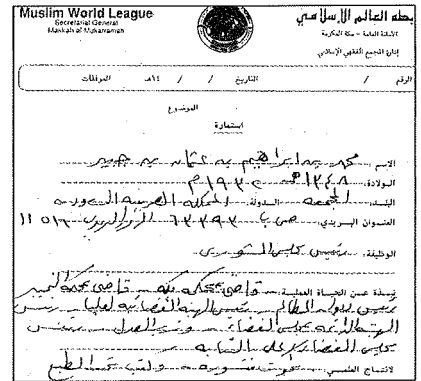 Muslim World League
Secretariat General
Makkah al Mukarramah
رابطة العالم الإسلامي
الأمانة العامة - مكة المكرمة
إدارة المجمع الفقهي الإسلامي
الرقم / التاريخ / / ١٤هـ المرفقات
الموضوع
استمارة
الاسم: محمد بن ابراهيم بن عثمان بن جبير
الولادة: ١٣٤٨هـ ١٩٣٠م
البلد: المجمعة الدولة: المملكة العربية السعودية
العنوان البريدي: ص ب ٦٣٣٩٣ الرمز البريدي ١١٥١٦
الوظيفة: رئيس مجلس الشورى
نبذة عن الحياة العملية: قاضي محكمة مكة - قاضي محكمة التمييز
رئيس ديوان المظالم - رئيس الهيئة القضائية العليا - رئيس
الهيئة الدائمة بمجلس القضاء - وزير العدل - رئيس
مجلس القضاء الأعلى بالنيابة
الإنتاج العلمي: بحوث منشورة - وكتب تحت الطبع